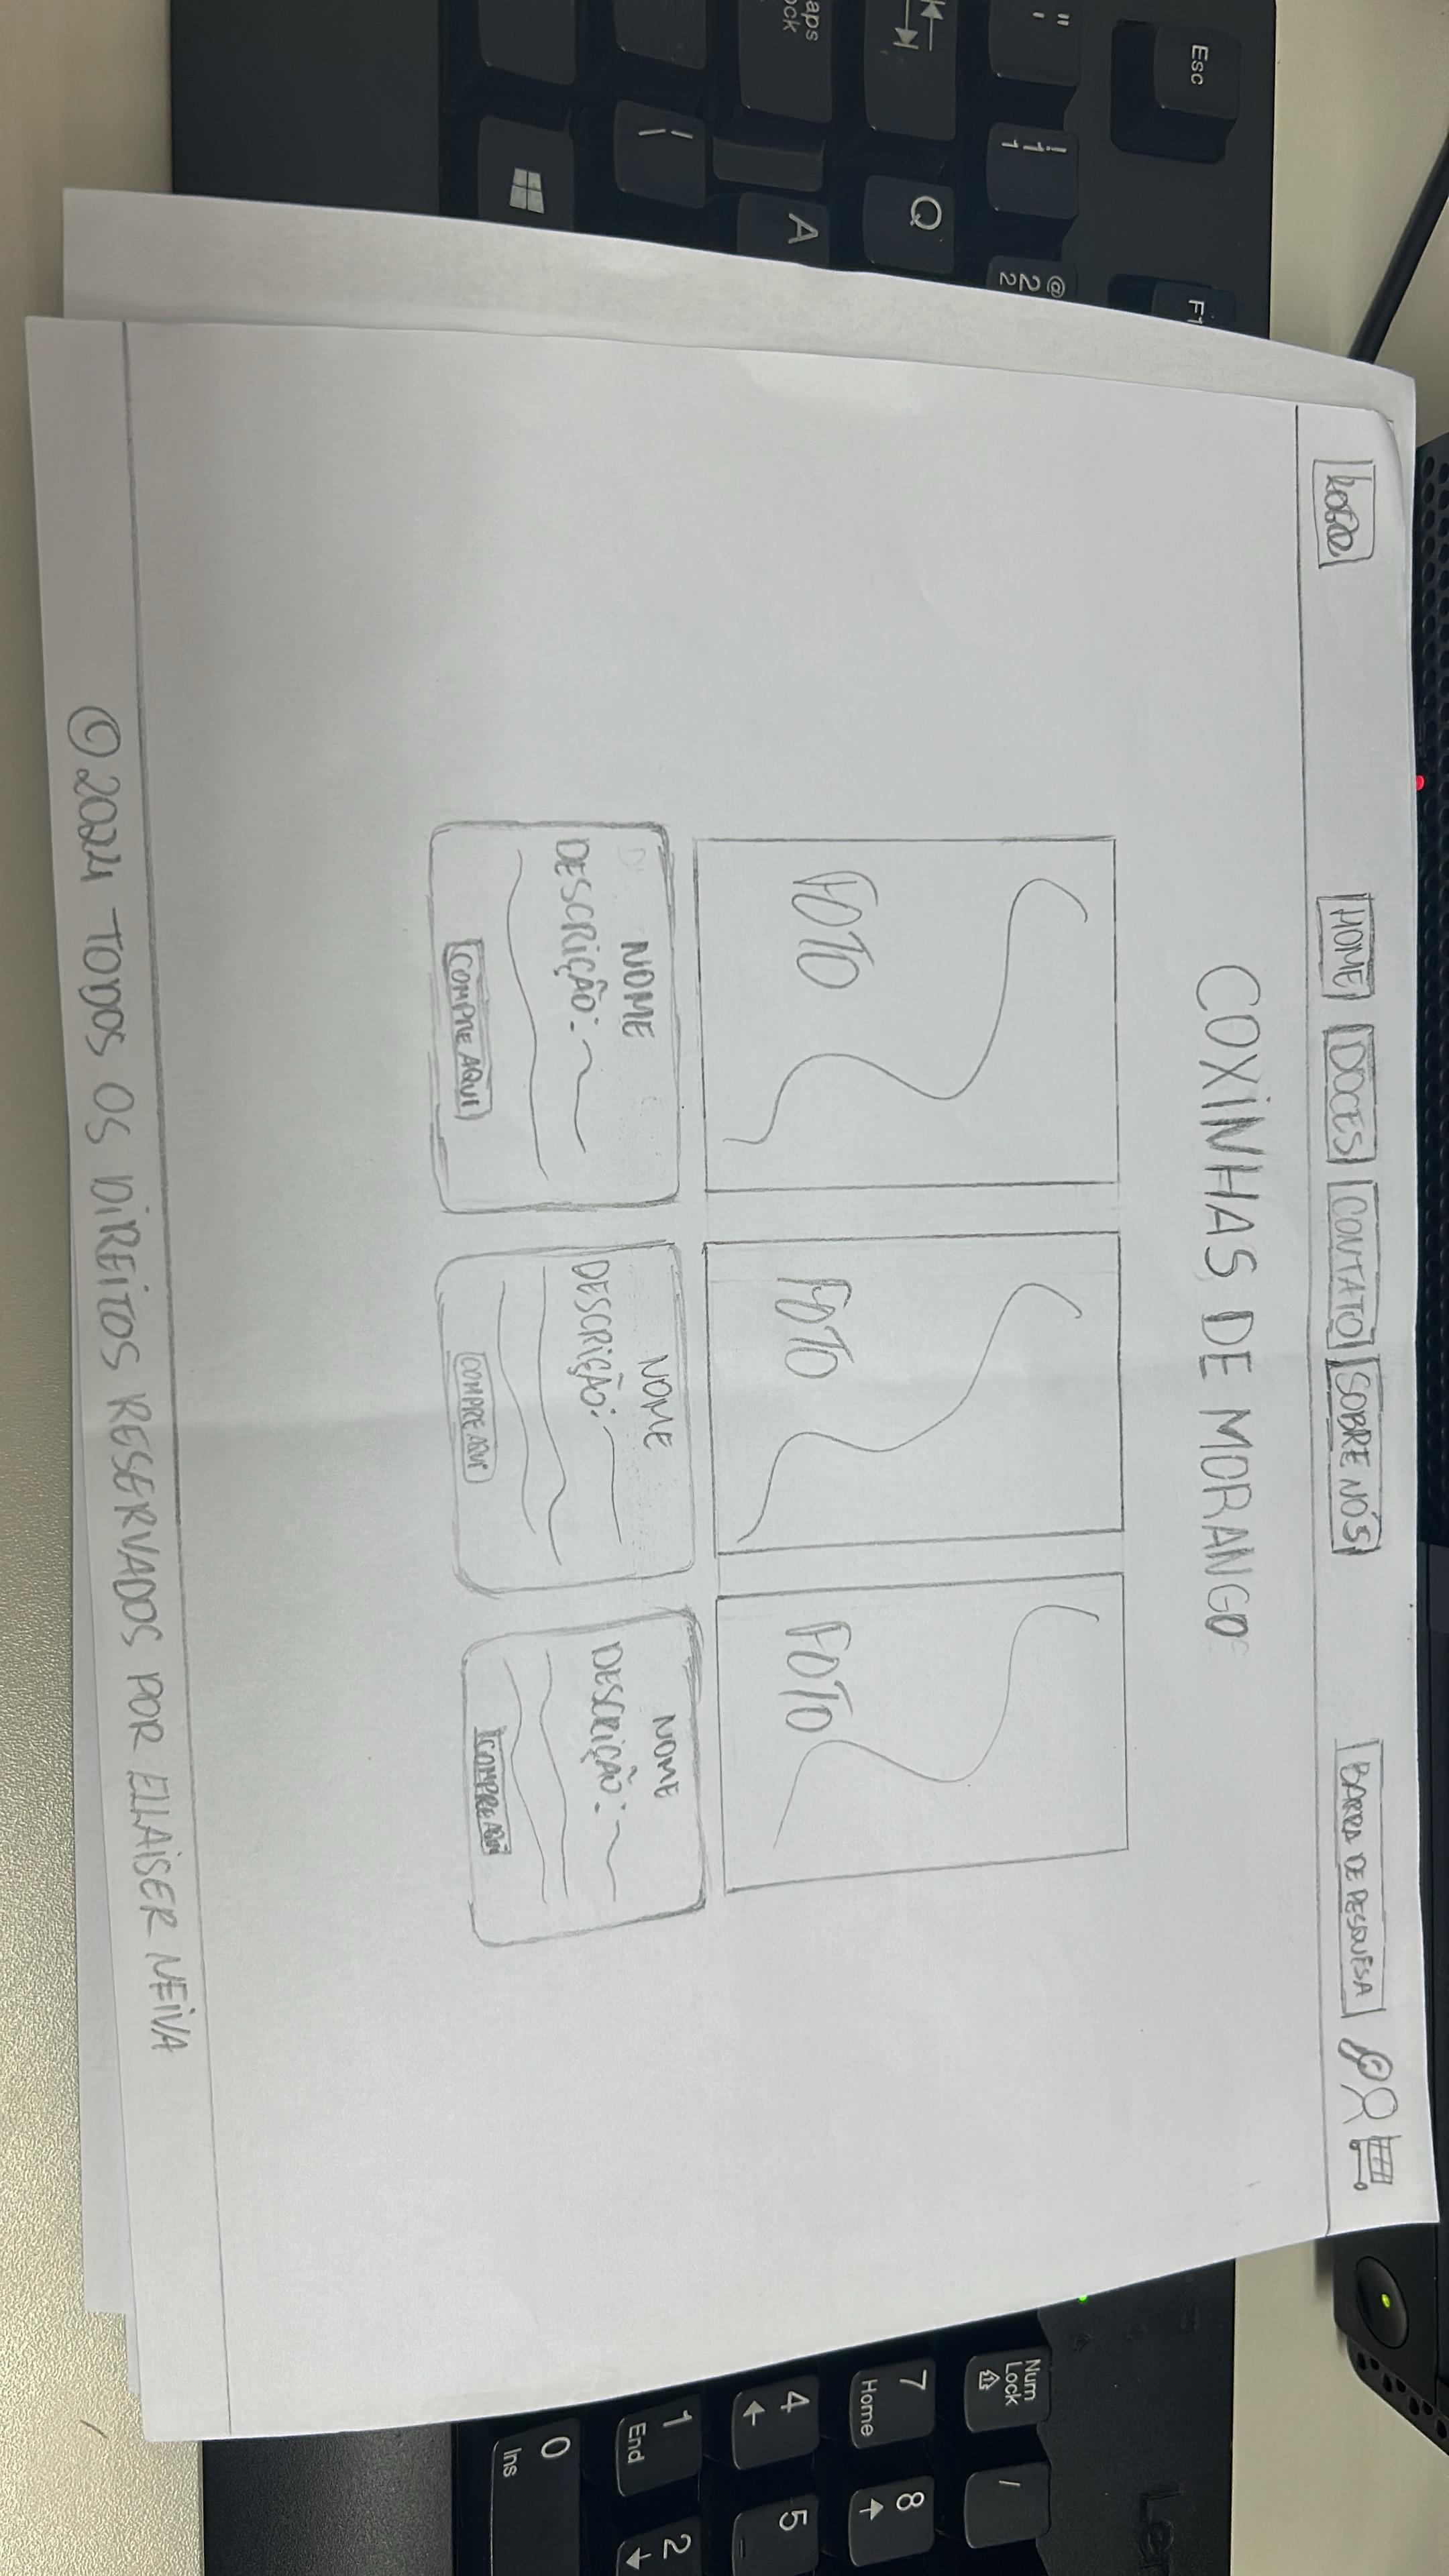 LOGO HOME DOCES CONTATO SOBRE NÓS BARRA DE PESQUISA
COXINHAS DE MORANGO
FOTO FOTO FOTO
NOME NOME NOME
DESCRIÇÃO: DESCRIÇÃO: DESCRIÇÃO:
COMPRE AQUI COMPRE AQUI COMPRE AQUI
© 2024 TODOS OS DIREITOS RESERVADOS POR ELLAISER NEIVA
Esc
F1
" '
! 1 1
@ 2 2
Q
aps
ock
A
\ |
Num
Lock
/
7
Home
8
4
5
1
End
2
0
Ins
Len